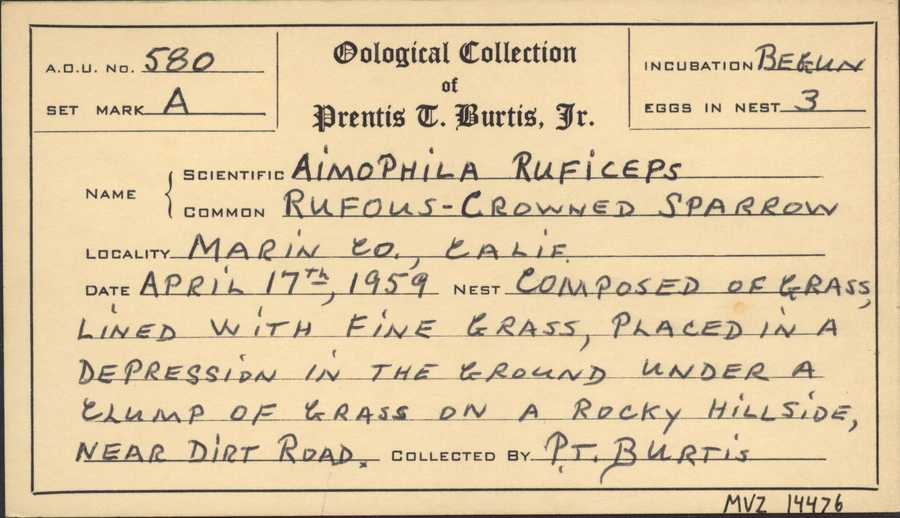 A.O.U. No. 580
SET MARK A
Oological Collection
of
Prentis T. Burtis, Jr.
INCUBATION BEGUN
EGGS IN NEST 3
NAME
SCIENTIFIC AIMOPHILA RUFICEPS
COMMON RUFOUS-CROWNED SPARROW
LOCALITY MARIN CO., CALIF.
DATE APRIL 17th, 1959 NEST COMPOSED OF GRASS,
LINED WITH FINE GRASS, PLACED IN A
DEPRESSION IN THE GROUND UNDER A
CLUMP OF GRASS ON A ROCKY HILLSIDE,
NEAR DIRT ROAD. COLLECTED BY P.T. BURTIS
MVZ 14476